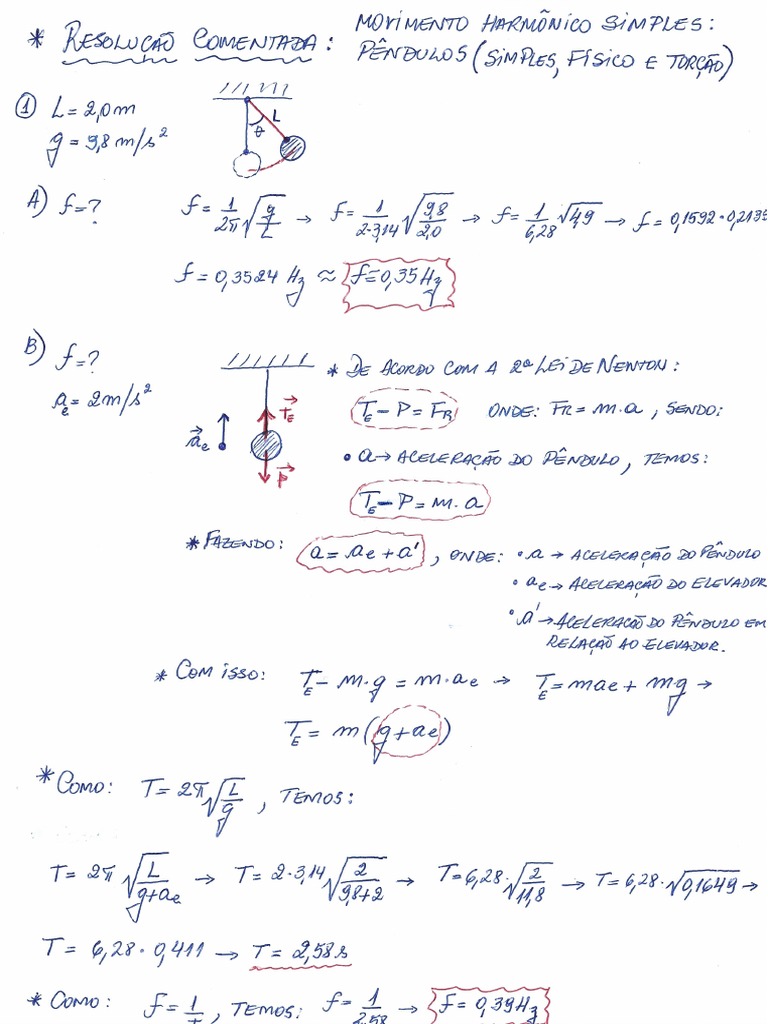 * RESOLUÇÃO COMENTADA: MOVIMENTO HARMÔNICO SIMPLES:
PÊNDULOS (SIMPLES, FÍSICO E TORÇÃO)
① L = 2,0m
g = 9,8 m/s²
L
θ
A) f = ? f = 1/2π √(g/L) → f = 1/(2·3,14) √(9,8/2,0) → f = 1/6,28 √4,9 → f = 0,1592·2,2135
f = 0,3524 Hz ≈ f = 0,35 Hz
B) f = ?
ae = 2 m/s²
ae
TE
P
* DE ACORDO COM A 2ª LEI DE NEWTON:
TE - P = FR ONDE: FR = m·a, SENDO:
• a → ACELERAÇÃO DO PÊNDULO, TEMOS:
TE - P = m·a
* FAZENDO: a = ae + a', ONDE: • a → ACELERAÇÃO DO PÊNDULO
• ae → ACELERAÇÃO DO ELEVADOR
• a' → ACELERAÇÃO DO PÊNDULO EM
RELAÇÃO AO ELEVADOR.
* COM ISSO: TE - m·g = m·ae → TE = mae + mg →
TE = m(g + ae)
* COMO: T = 2π √(L/g), TEMOS:
T = 2π √(L/(g+ae)) → T = 2·3,14 √(2/(9,8+2)) → T = 6,28·√(2/11,8) → T = 6,28·√0,1649 →
T = 6,28·0,411 → T = 2,58s
* COMO: f = 1/T, TEMOS: f = 1/2,58 → f = 0,39 Hz